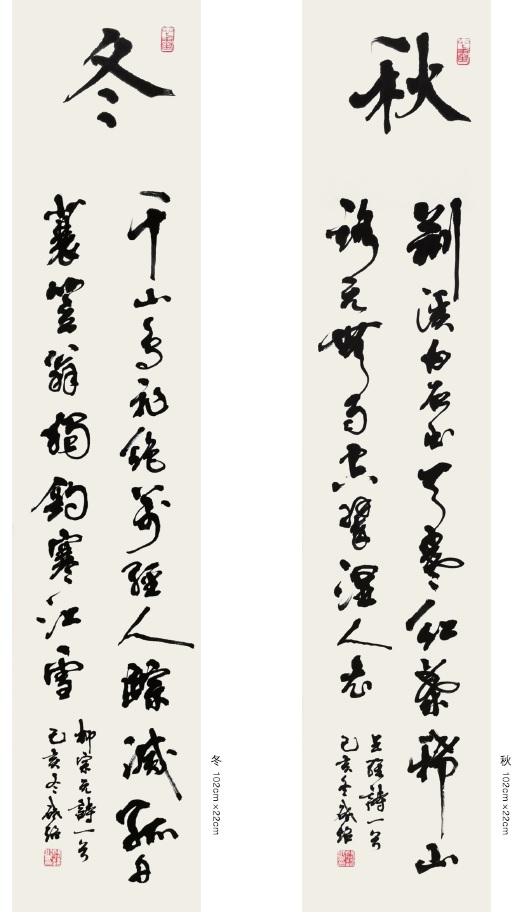 秋
荆溪白石出天寒紅葉稀山
路元無雨空翠濕人衣
王維詩一首
己亥冬
秋 102cm×22cm
冬
千山鳥飛絕萬徑人蹤滅孤舟
蓑笠翁獨釣寒江雪
柳宗元詩一首
己亥冬
冬 102cm×22cm